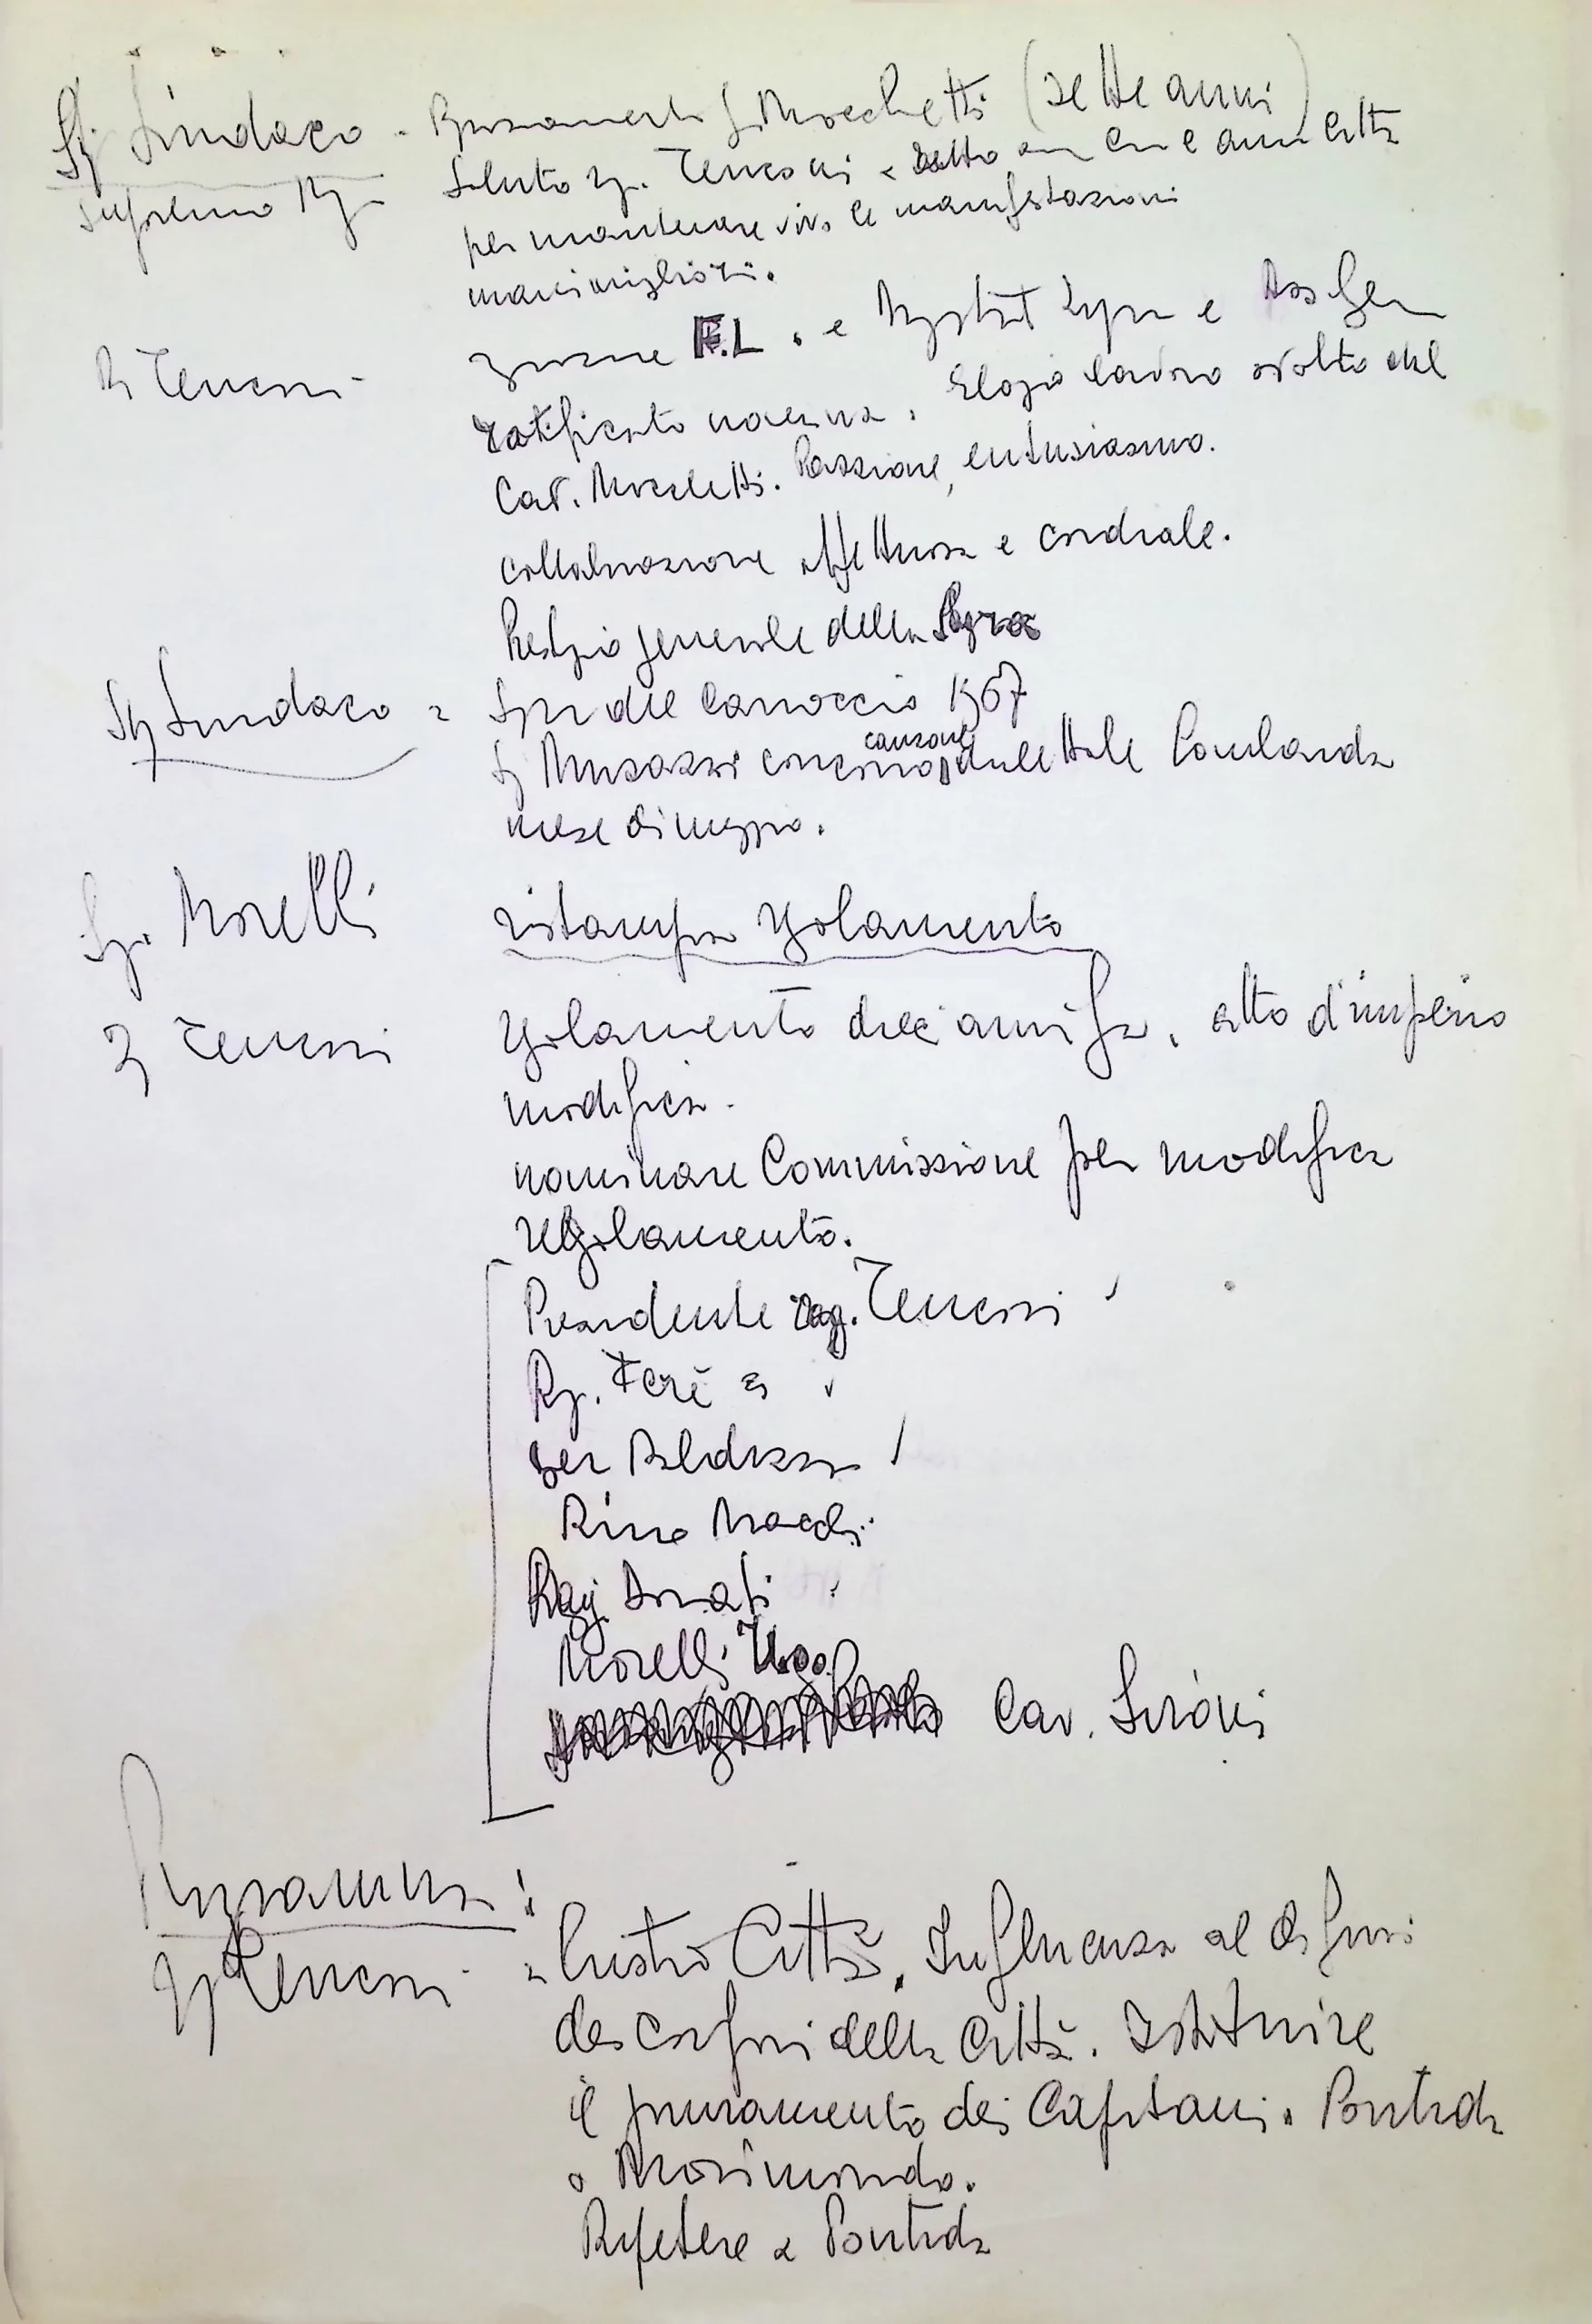 Sig Sindaco - Ringraziamento Sig Mocchetti (sette anni)
supremo Mag. Saluto rag. Tenconi
per mantenere vive le manifestazioni
marcimigliori.
R Tenconi - F.L. e Magistrat e
ratificato nomina. Elogio lavoro svolto dal
Cav. Mocchetti. Passione, entusiasmo.
collaborazione affettuosa e cordiale.
Prestigio generale della Sagra
Sig Sindaco = Sagra del Carroccio 1967
canzone
Sig Musazzi concorso dialettale Lombarda
mese di maggio.
Sig. Morelli ristampa regolamento
R Tenconi regolamento dieci anni fa, atto d'imperio
modifica.
nominare Commissione per modifica
regolamento.
Presidente rag. Tenconi
Rag. Ferè
Baldassa
Rino Macchi
Rag. Donati
Morelli Ugo
Cav. Sironi
Programma:
Rag Tenconi - lustro Città, Influenza al di fuori
dei confini della Città. Istituire
il giuramento dei Capitani a Pontida
o Morimondo.
Ripetere a Pontida